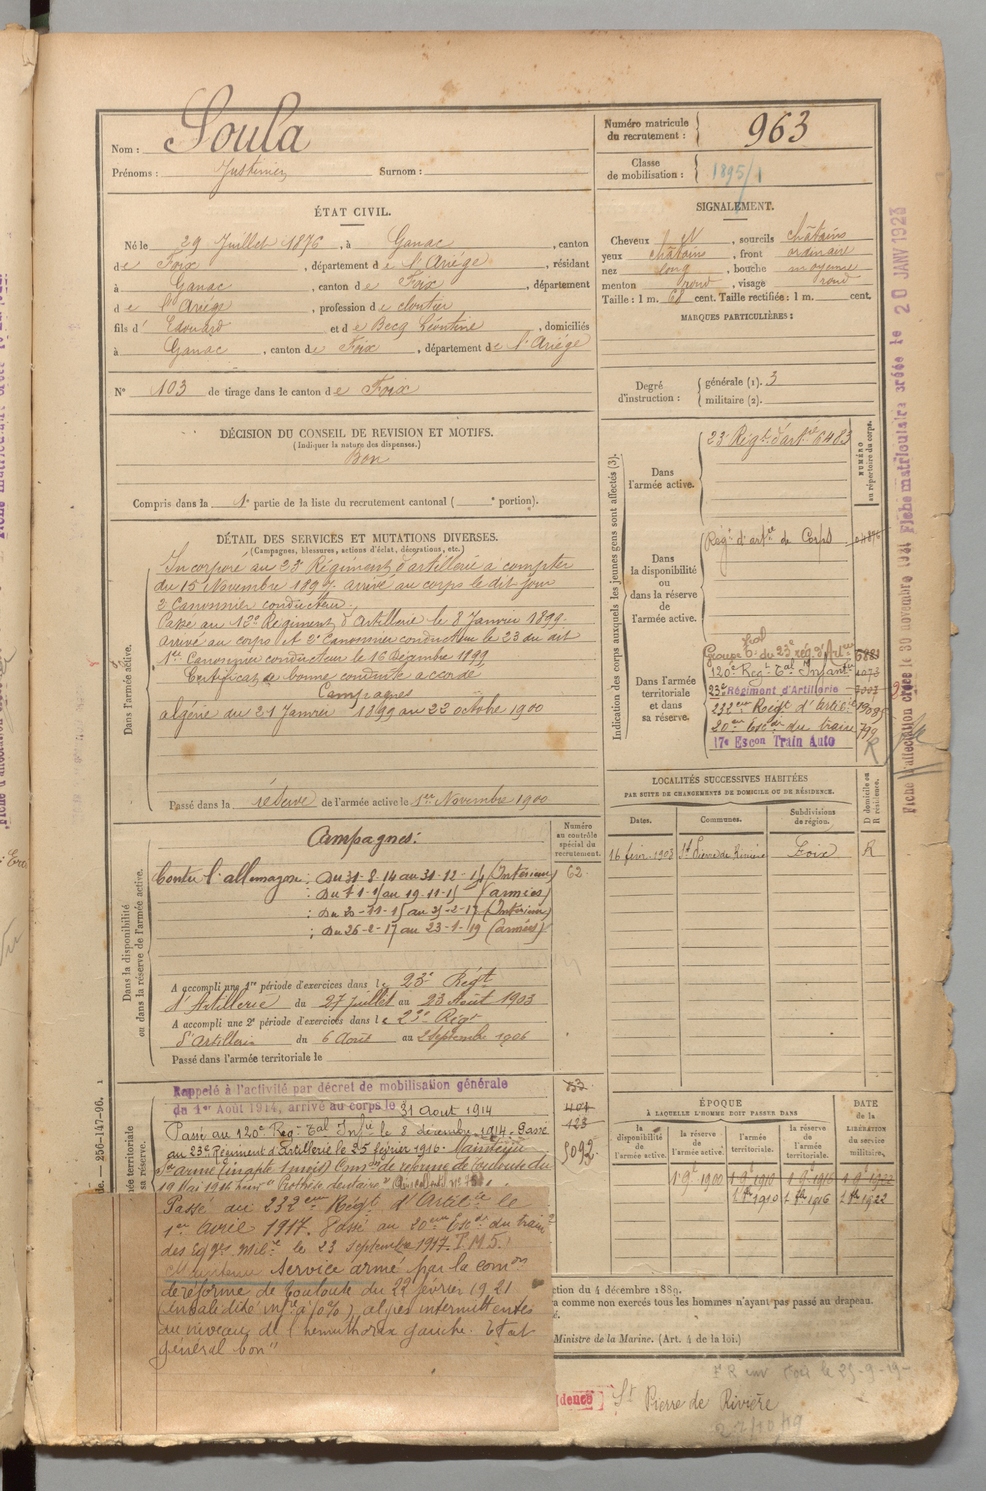 Nom : Soula
Prénoms : Justinien Surnom :
Numéro matricule du recrutement : 963
Classe de mobilisation : 1895/1
ÉTAT CIVIL.
Né le 29 Juillet 1876, à Ganac, canton
de Foix, département de l'Ariège, résidant
à Ganac, canton de Foix, département
de l'Ariège, profession de cloutier
fils d' Edouard et de Becq Léontine, domiciliés
à Ganac, canton de Foix, département de l'Ariège
N° 103 de tirage dans le canton de Foix
SIGNALEMENT.
Cheveux, sourcils châtains
yeux châtains, front ordinaire
nez long, bouche moyenne
menton rond, visage rond
Taille : 1 m. 68 cent. Taille rectifiée : 1 m. cent.
MARQUES PARTICULIÈRES :
Degré d'instruction : générale (1). 3
militaire (2).
DÉCISION DU CONSEIL DE REVISION ET MOTIFS.
(Indiquer la nature des dispenses.)
Bon
Compris dans la 1e partie de la liste du recrutement cantonal ( e portion).
DÉTAIL DES SERVICES ET MUTATIONS DIVERSES.
(Campagnes, blessures, actions d'éclat, décorations, etc.)
Dans l'armée active.
Incorporé au 23e Régiment d'artillerie à compter
du 15 Novembre 1897. arrivé au corps le dit jour
2e Canonnier conducteur.
Passé au 12e Régiment d'Artillerie le 8 Janvier 1899.
arrivé au corps et 2e Canonnier conducteur le 23 du dit
1er Canonnier conducteur le 16 Décembre 1899
Certificat de bonne conduite accordé
Campagnes
algérie du 21 Janvier 1899 au 22 octobre 1900
Passé dans la réserve de l'armée active le 1er Novembre 1900
Indication des corps auxquels les jeunes gens sont affectés (3).
NUMÉRO au répertoire du corps.
Dans l'armée active.
23e Régt d'artie 6483
Dans la disponibilité ou dans la réserve de l'armée active.
Régt d'artie de Corps
Dans l'armée territoriale et dans sa réserve.
Groupe tal du 23e rég. d'Artie
120e Régt Tal Infanie
23e Régiment d'Artillerie
222eme Régt d'artie
20eme Escon du train
17e Escon Train Auto
R
LOCALITÉS SUCCESSIVES HABITÉES
PAR SUITE DE CHANGEMENTS DE DOMICILE OU DE RÉSIDENCE.
Dates. Communes. Subdivisions de région. D domicile ou R résidence.
16 févr. 1903 St Pierre de Rivière Foix R
Dans la disponibilité ou dans la réserve de l'armée active.
Numéro au contrôle spécial du recrutement.
62.
Campagnes :
Contre l'allemagne : Du 31-8-14 au 31-12-14 (Intérieur)
: Du 1-1-15 au 19-11-15 (armées)
: Du 20-11-15 au 25-2-17 (Intérieur)
: Du 26-2-17 au 23-1-19 (armées)
A accompli une 1re période d'exercices dans le 23e Régt
d'Artillerie du 27 Juillet au 23 Août 1903
A accompli une 2e période d'exercices dans le 23e Régt
d'Artillerie du 6 Août au 2 Septembre 1906
Passé dans l'armée territoriale le
Rappelé à l'activité par décret de mobilisation générale
du 1er Août 1914, arrivé au corps le 31 août 1914
Passé au 120e Regt Tal Infie le 8 décembre 1914. Passé
au 23e Régiment d'Artillerie le 25 février 1916. Maintenu
Sce armé (inapte 1 mois) Comon de réforme de Toulouse du
19 Mai 1916
5092
Passé au 232eme Régt d'Artilie le
1er Avril 1917. Passé au 20eme Escon du train
des Eqges Milre le 23 septembre 1917. T.M 5.
Maintenu Service armé par la comon
de réforme de Toulouse du 22 février 1921
(invalidité infre à 10%) algies intermittentes
au niveau de l'hémithorax gauche. Etat
général bon"
ÉPOQUE
À LAQUELLE L'HOMME DOIT PASSER DANS
DATE de la LIBÉRATION du service militaire.
la disponibilité de l'armée active. la réserve de l'armée active. l'armée territoriale. la réserve de l'armée territoriale.
1 9bre 1900 1 9 1910 1 9 1916 1 9 1922
1 8bre 1910 1 8bre 1916 1 8bre 1922
ction du 4 décembre 1889.
ra comme non exercés tous les hommes n'ayant pas passé au drapeau.
Ministre de la Marine. (Art. 4 de la loi.)
dence
St Pierre de Rivière
22/10/19
Fiche matriculaire créée le 20 JANV 1923
Fiche d'affectation créée le 30 novembre 1931
256-147-96.